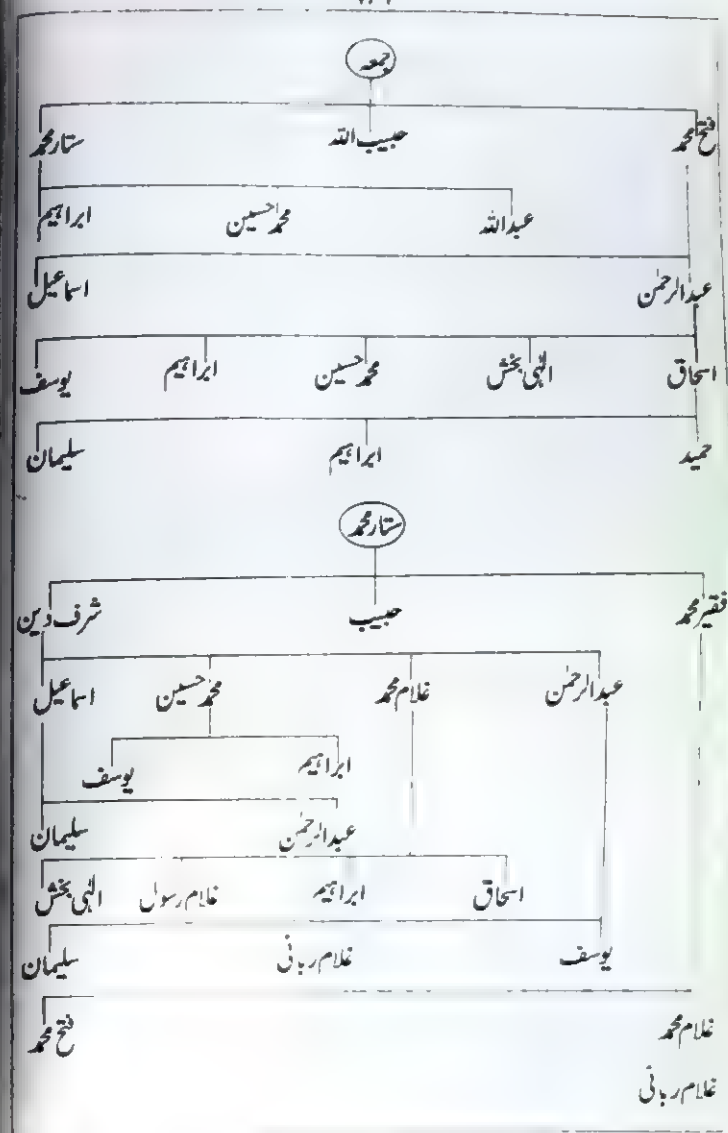 جمعہ
فتح محمد حبیب اللہ ستار محمد
عبداللہ محمد حسین ابراہیم
عبدالرحمٰن اسماعیل
اسحاق الٰہی بخش محمد حسین ابراہیم یوسف
حمید ابراہیم سلیمان
ستار محمد
فقیر محمد حبیب شرف دین
عبدالرحمٰن غلام محمد محمد حسین اسماعیل
ابراہیم یوسف
عبدالرحمٰن سلیمان
اسحاق ابراہیم غلام رسول الٰہی بخش
یوسف غلام ربانی سلیمان
غلام محمد فتح محمد
غلام ربانی